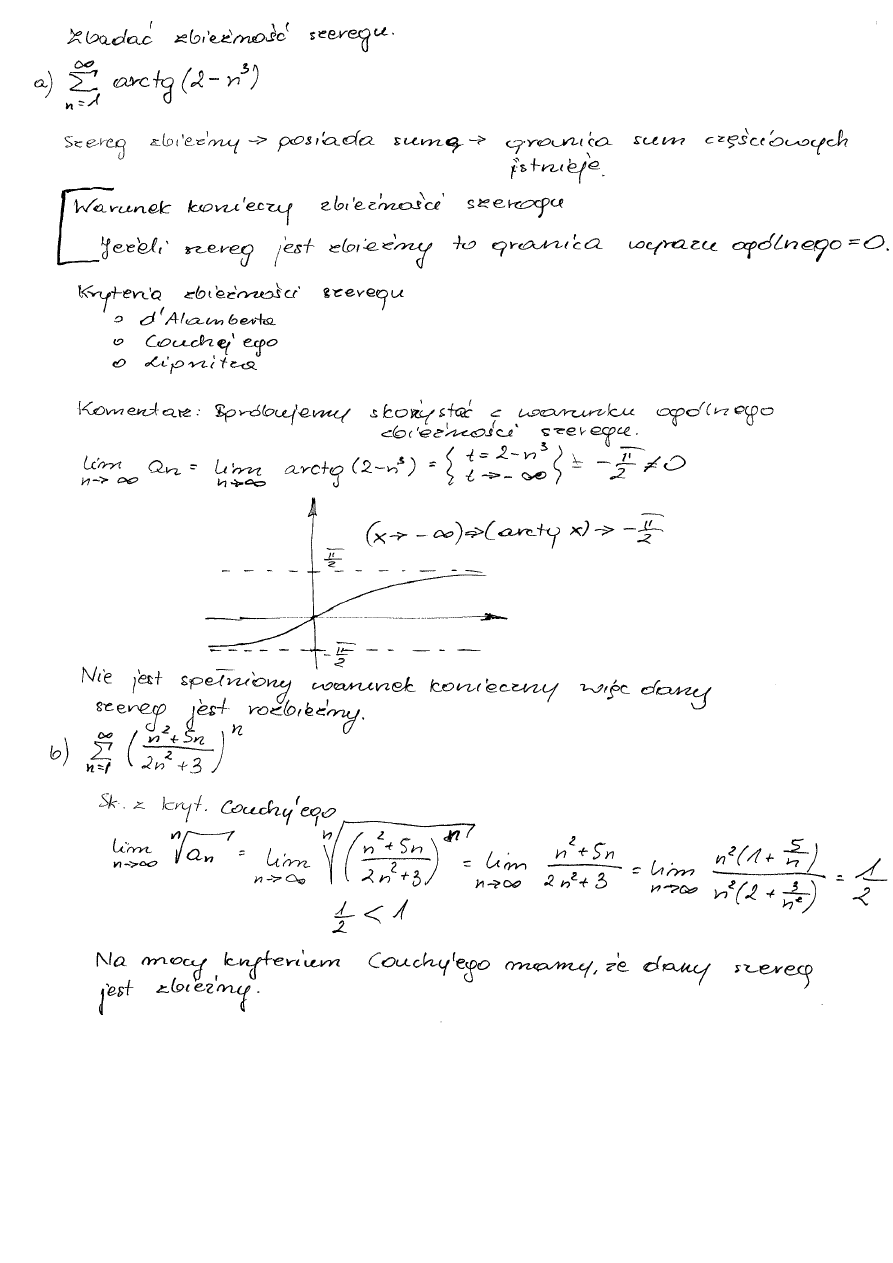 Zbadać zbieżność szeregu.
a) ∑_{n=1}^{∞} arctg (2 - n³)
Szereg zbieżny → posiada sumę → granica sum częściowych
istnieje.
Warunek konieczy zbieżności szeregu
Jeżeli szereg jest zbieżny to granica wyrazu ogólnego = 0.
Kryteria zbieżności szeregu
o d'Alamberta
o Couchej'ego
o Lipnitza
Komentarz: Spróbujemy skorzystać z warunku ogólnego
zbieżności szeregu.
lim_{n→∞} an = lim_{n→∞} arctg (2-n³) = { t = 2-n³ t → -∞ } = -π/2 ≠ 0
(x → -∞) ⇒ (arctg x) → -π/2
π/2
-π/2
Nie jest spełniony warunek konieczny więc dany
szereg jest rozbieżny.
b) ∑_{n=1}^{∞} ((n²+5n)/(2n²+3))^n
Sk. z kryt. Couchy'ego
lim_{n→∞} ⁿ√an = lim_{n→∞} ⁿ√((n²+5n)/(2n²+3))^n = lim_{n→∞} (n²+5n)/(2n²+3) = lim_{n→∞} n²(1+5/n)/n²(2+3/n²) = 1/2
1/2 < 1
Na mocy kryterium Couchy'ego mamy, że dany szereg
jest zbieżny.